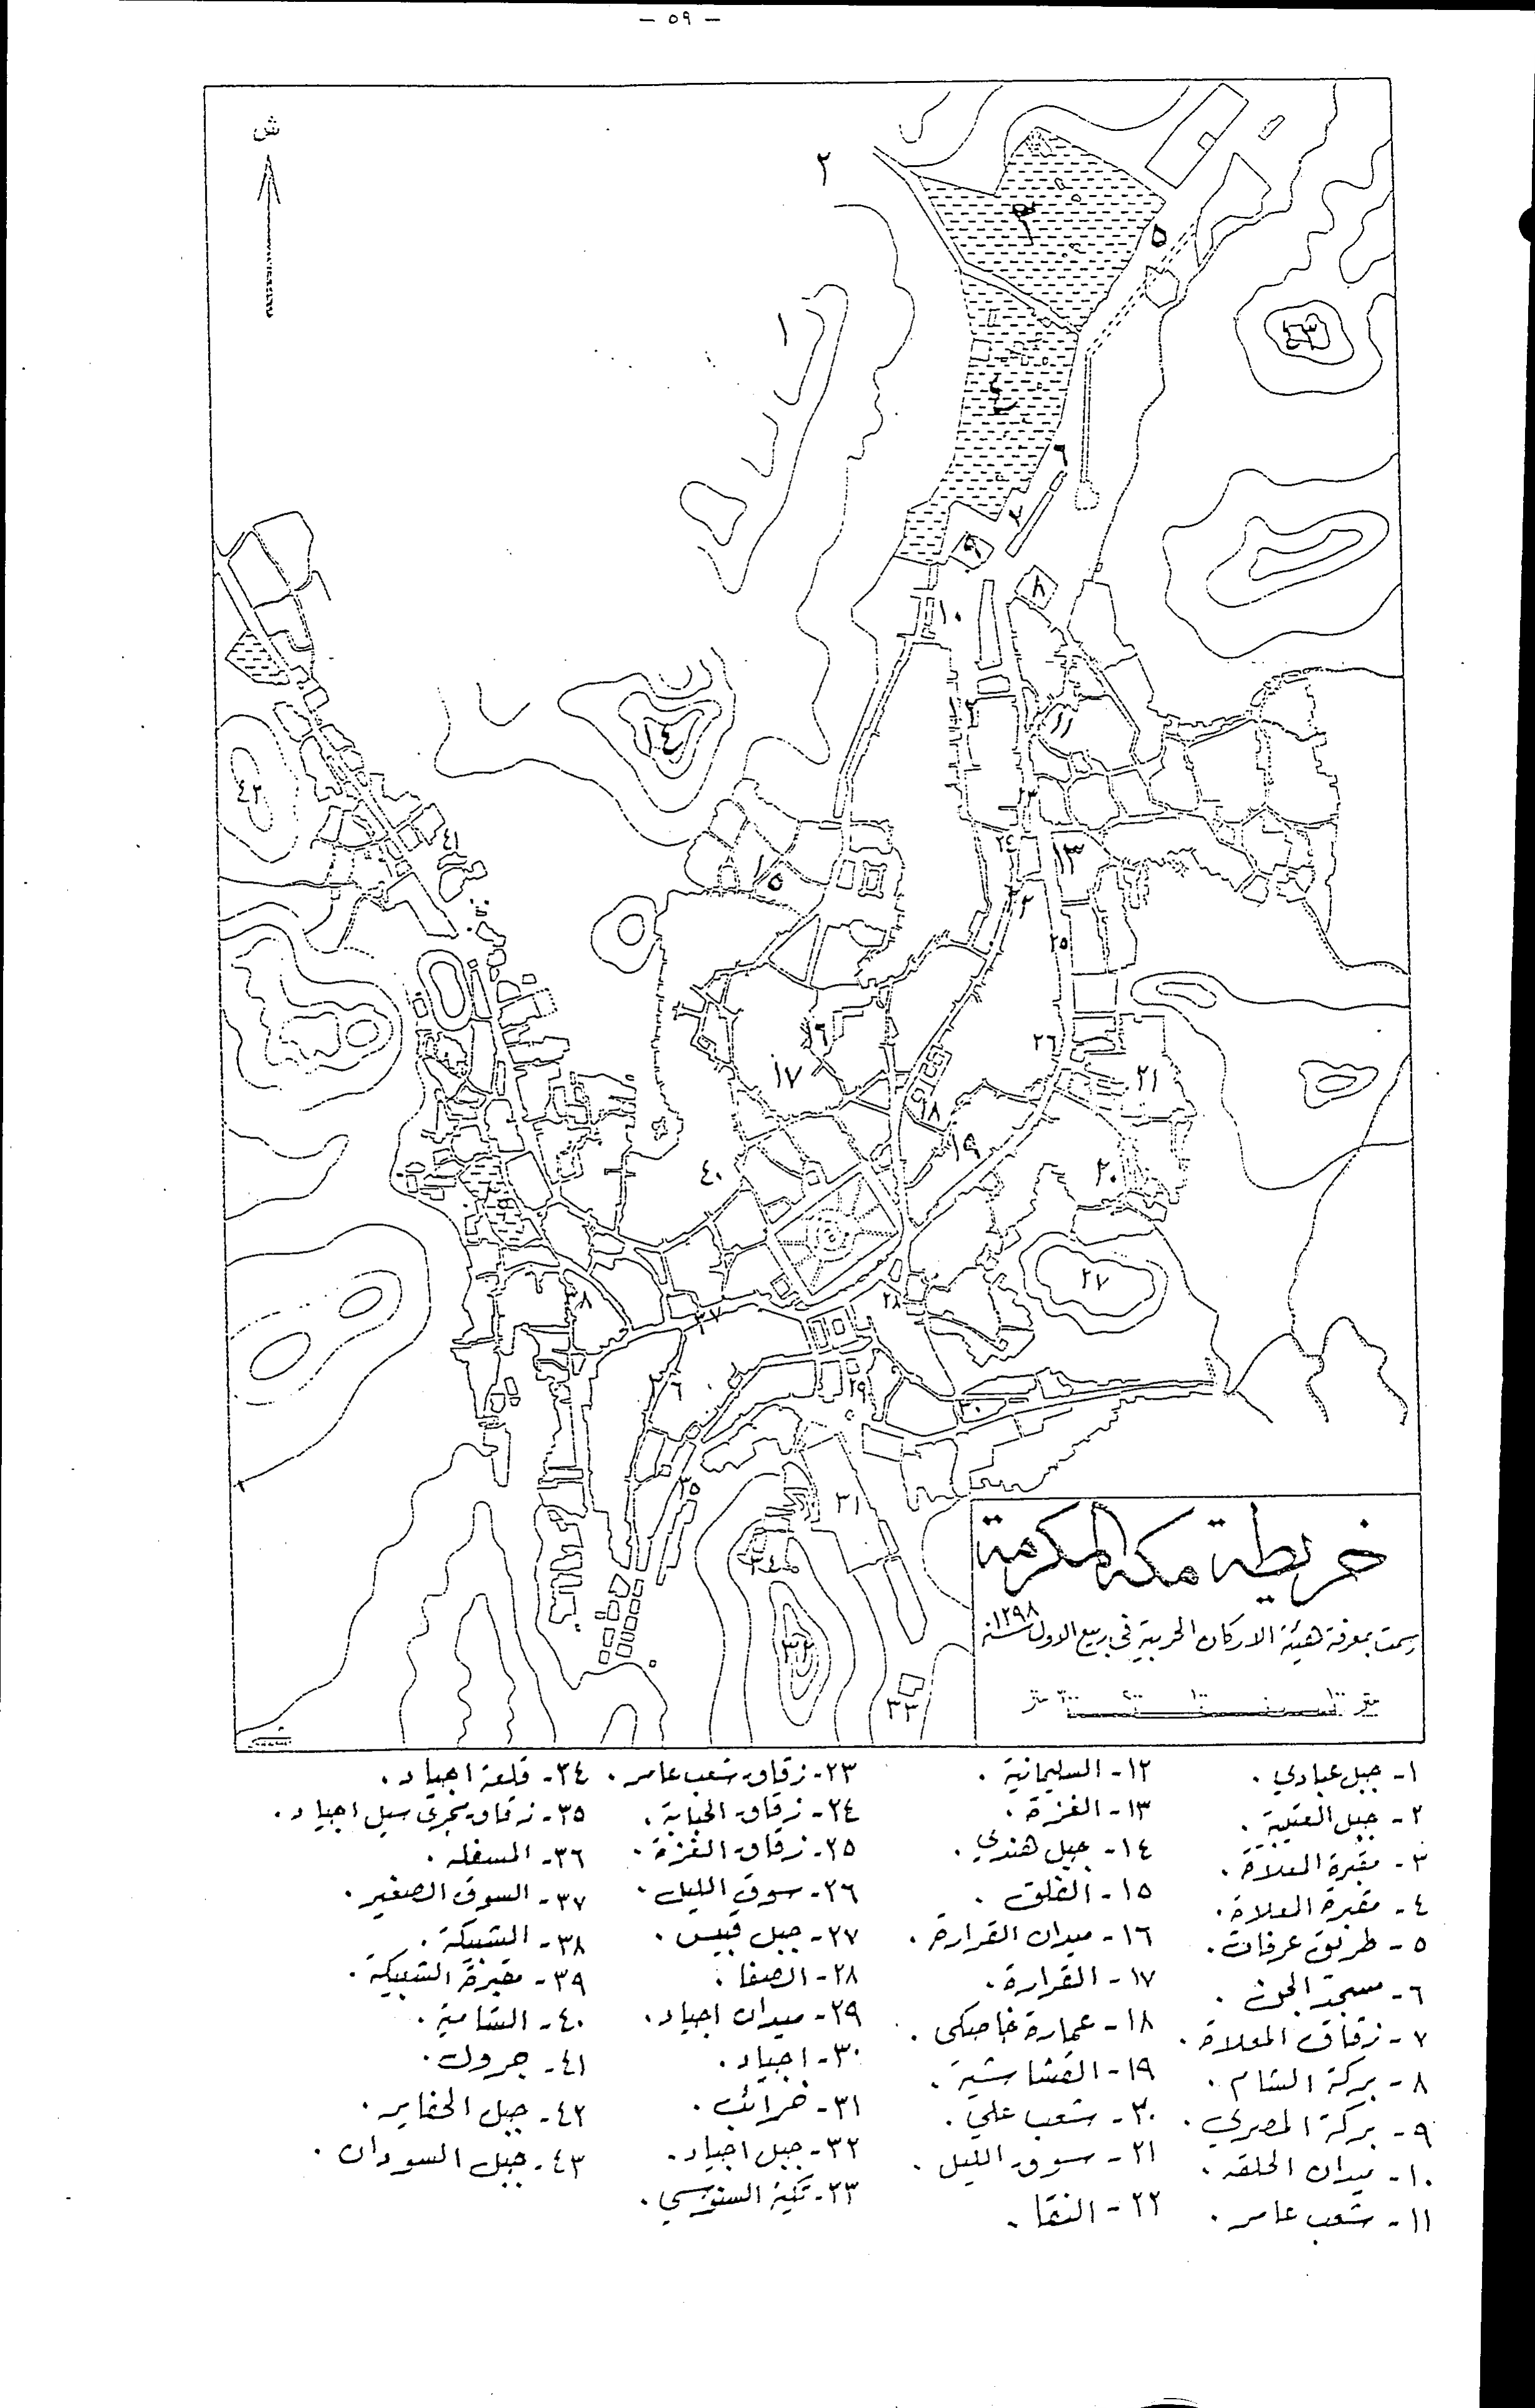 - ٥٩ -
ش
خريطة مكة المكرمة
رسمت بمعرفة هيئة الاركان الحربية في ربيع الاول سنة ١٢٩٨
متر ١٠٠ ٠ ١٠٠ ٢٠٠ ٣٠٠ متر
١- جبل عبادي .
٢- جبل العتيبية .
٣- مقبرة المعلاة .
٤- مقبرة المعلاة .
٥- طريق عرفات .
٦- مسجد الجن .
٧- زقاق المعلاة .
٨- بركة الشام .
٩- بركة المصري .
١٠- ميدان الحلقه .
١١- شعب عامر .
١٢- السليمانية .
١٣- الغزة .
١٤- جبل هندي .
١٥- الفلق .
١٦- ميدان القرارة .
١٧- القرارة .
١٨- عمارة خاصكي .
١٩- القشاشية .
٣٠- شعب علي .
٢١- سوق الليل .
٢٢- النقا .
٢٣- زقاق شعب عامر .
٢٤- زقاق الجبابة .
٢٥- زقاق الغزة .
٢٦- سوق الليل .
٢٧- جبل قبيس .
٢٨- الصفا .
٢٩- ميدان اجياد .
٣٠- اجياد .
٣١- خرائب .
٣٢- جبل اجياد .
٣٣- تكية السنوسي .
٣٤- قلعة اجياد .
٣٥- زقاق مجرى سيل اجياد .
٣٦- المسفله .
٣٧- السوق الصغير .
٣٨- الشبيكة .
٣٩- مقبرة الشبيكة .
٤٠- الشامية .
٤١- جرول .
٤٢- جبل الحفاير .
٤٣- جبل السودان .